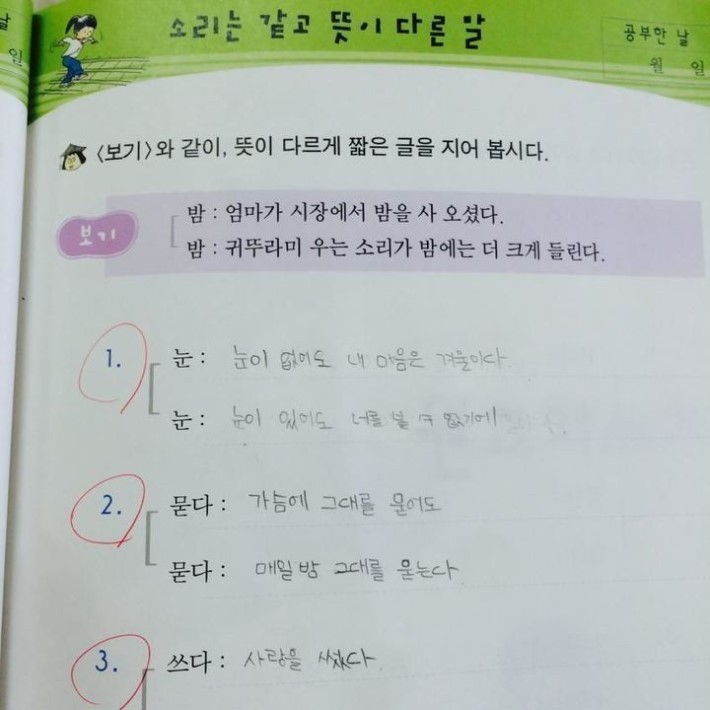 소리는 같고 뜻이 다른 말
공부한 날
월 일
날
일
〈보기〉와 같이, 뜻이 다르게 짧은 글을 지어 봅시다.
보기
밤 : 엄마가 시장에서 밤을 사 오셨다.
밤 : 귀뚜라미 우는 소리가 밤에는 더 크게 들린다.
1.
눈 : 눈이 없어도 내 마음은 겨울이다.
눈 : 눈이 있어도 너를 볼 수 없기에
2.
묻다 : 가슴에 그대를 묻어도
묻다 : 매일 밤 그대를 묻는다
3.
쓰다 : 사랑을 썼다.